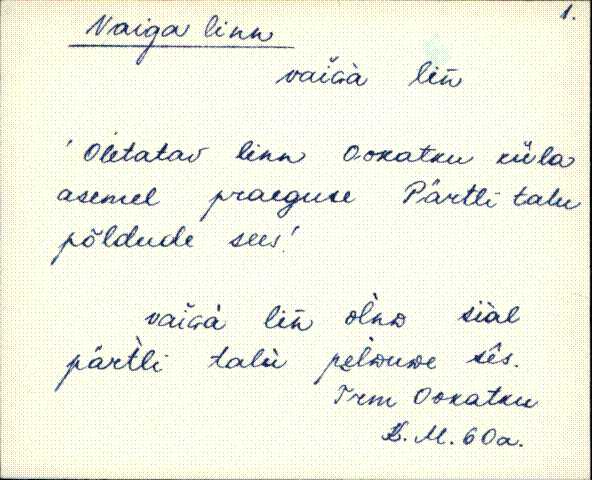 1.
Vaiga linn
vaiɢà lin̄
'Oletatav linn Ookatku küla
asemel praeguse Pärtli talu
põldude sees.'
vaiɢà lin̄ òlnᴅ siàl
pärtli talù ses.
Trm Ookatku
K. M. 60a.